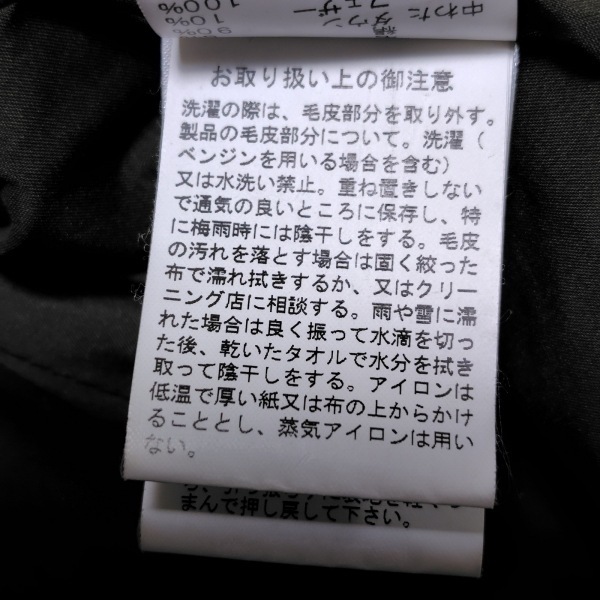 中わた
フェザー
ダウン
100%
10%
90%
お取り扱い上の御注意
洗濯の際は、毛皮部分を取り外す。
製品の毛皮部分について。洗濯（
ベンジンを用いる場合を含む）
又は水洗い禁止。重ね置きしない
で通気の良いところに保存し、特
に梅雨時には陰干しをする。毛皮
の汚れを落とす場合は固く絞った
布で濡れ拭きするか、又はクリー
ニング店に相談する。雨や雪に濡
れた場合は良く振って水滴を切っ
た後、乾いたタオルで水分を拭き
取って陰干しをする。アイロンは
低温で厚い紙又は布の上からかけ
ることとし、蒸気アイロンは用い
ない。
まんで押し戻して下さい。